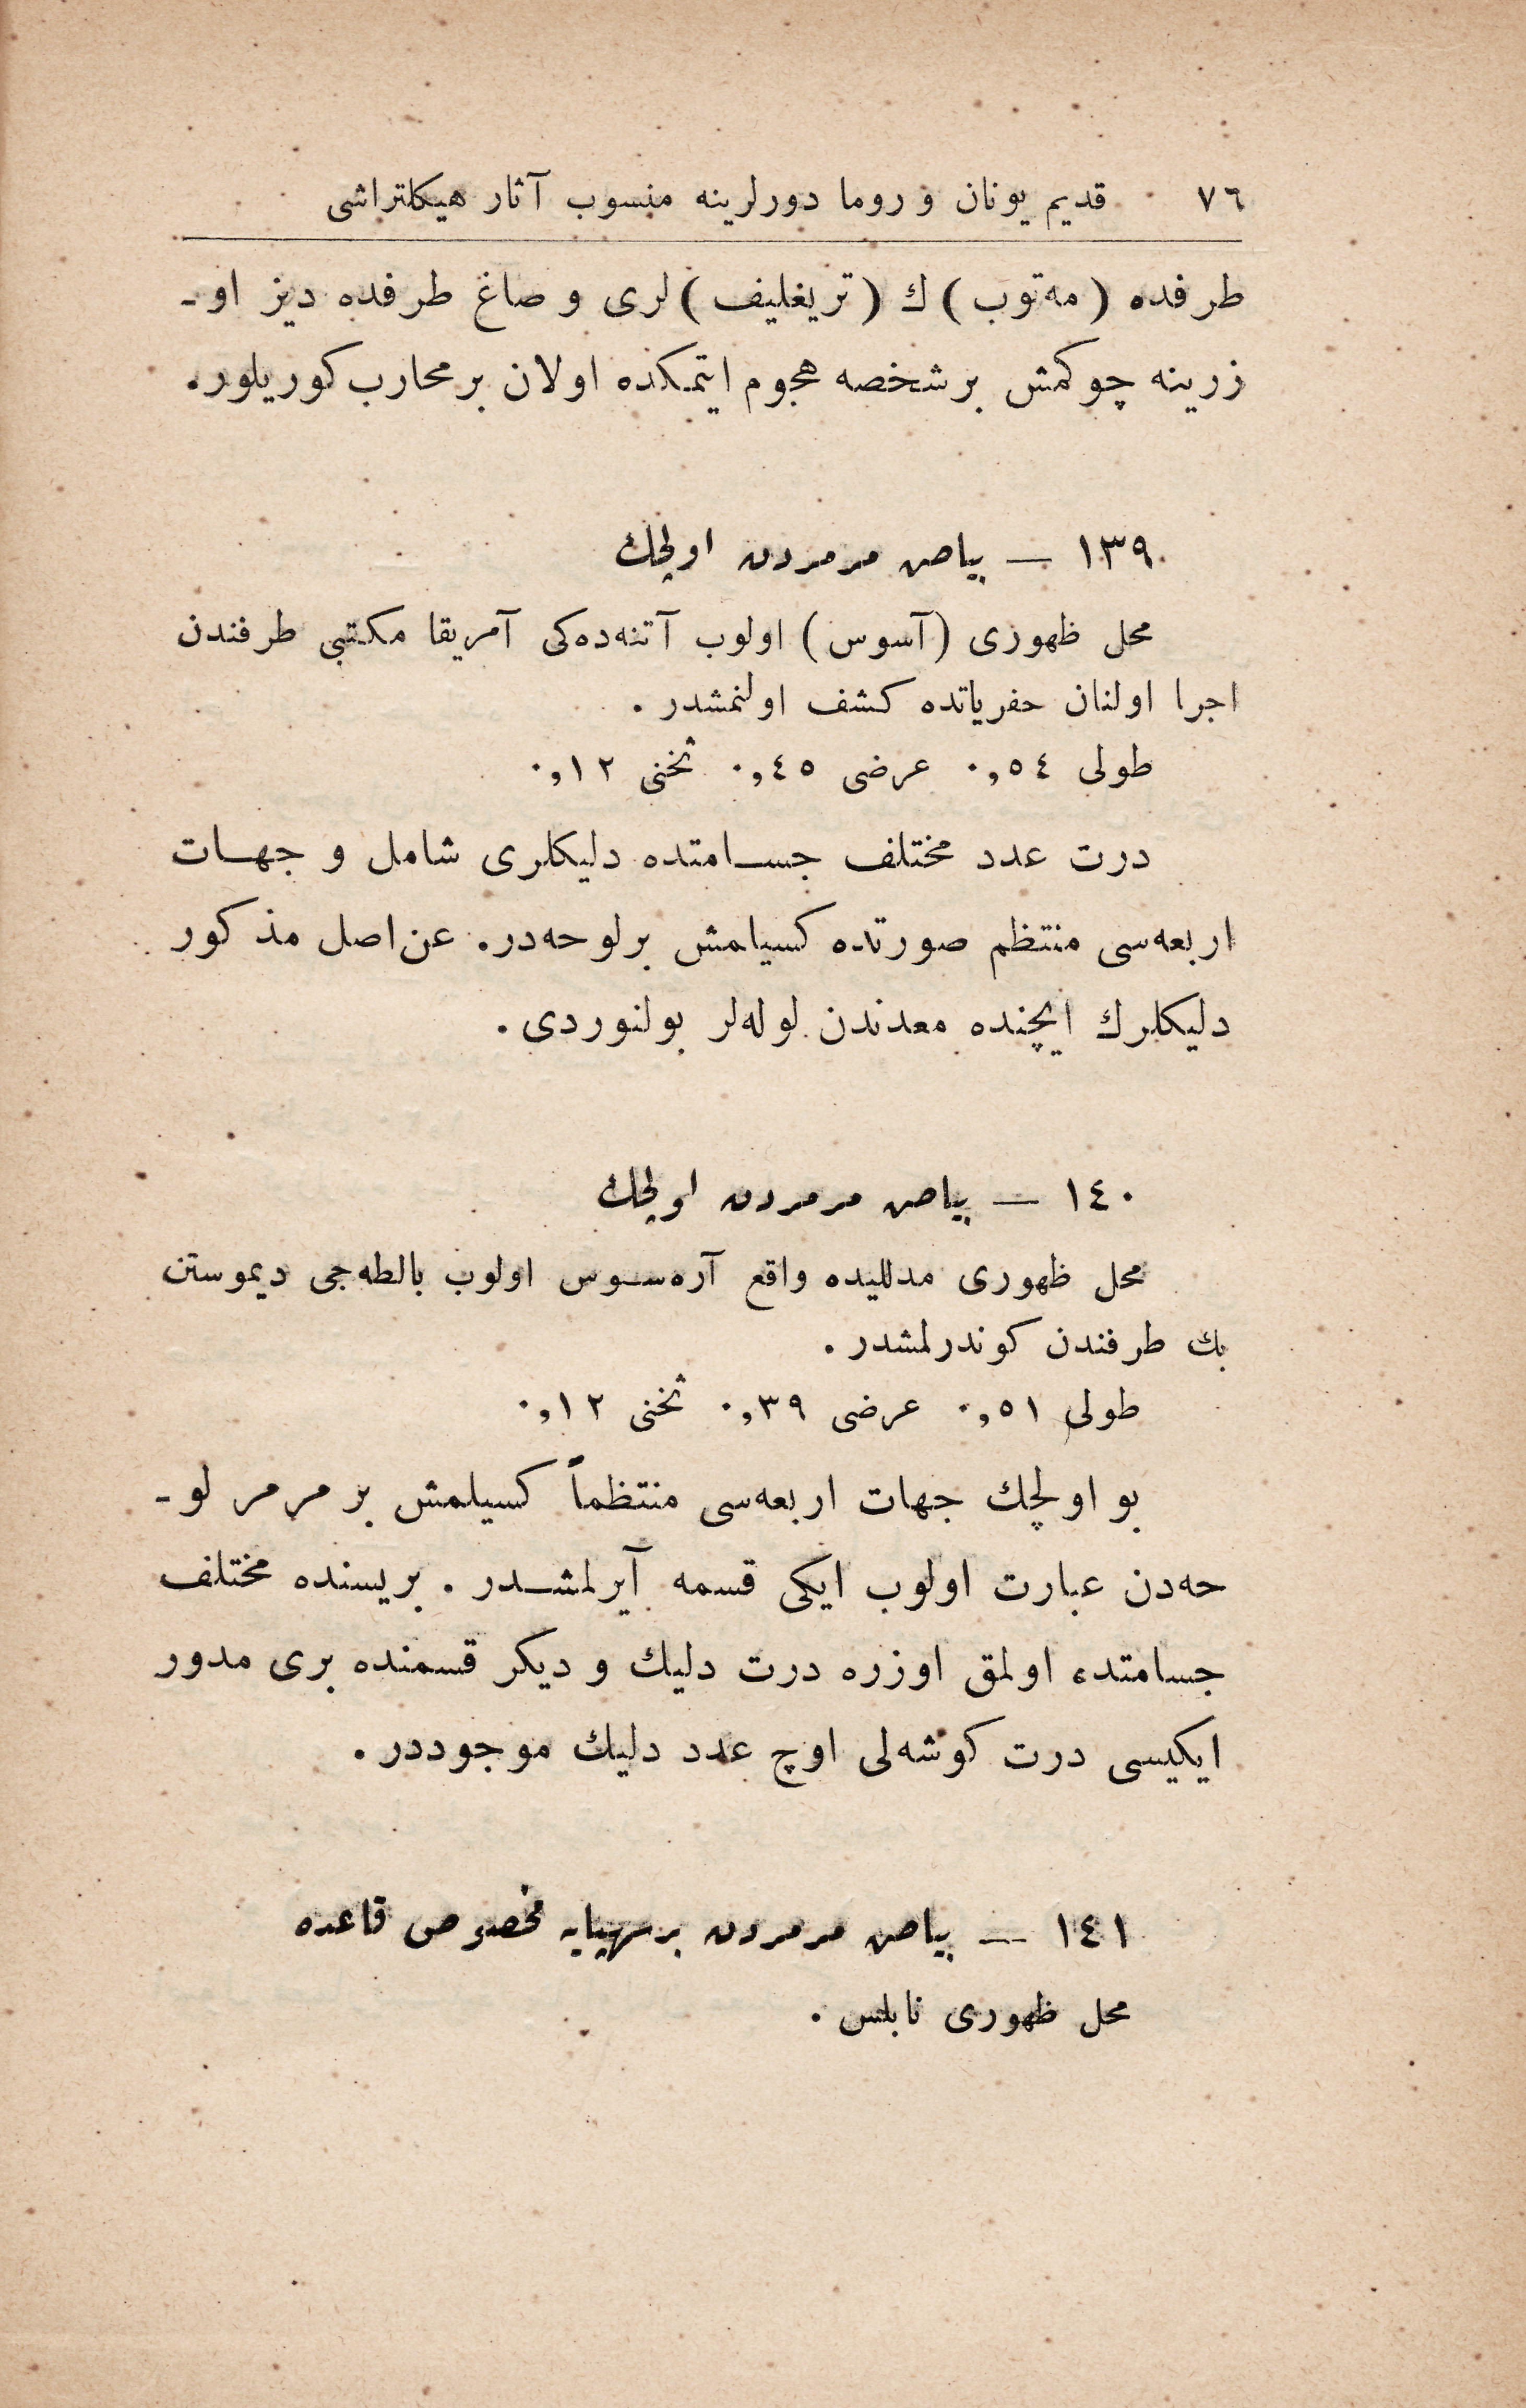 ٧٦ قديم يونان و روما دورلرينه منسوب آثار هيكلتراشى
طرفده (مه‌توب)ك (تريغليف)لرى و صاغ طرفده ديز او-
زرينه چوكمش بر شخصه هجوم ايتمكده اولان بر محارب كوريلور.
١٣٩ — بياض مرمردن اولچك
محل ظهورى (آسوس) اولوب آتنه‌ده‌كى آمريقا مكتبى طرفندن
اجرا اولنان حفرياتده كشف اولنمشدر.
طولى ٠,٥٤ عرضى ٠,٤٥ ثخنى ٠,١٢
درت عدد مختلف جسامتده دليكلرى شامل و جهات
اربعه‌سى منتظم صورتده كسيلمش بر لوحه‌در. عن‌اصل مذكور
دليكلرك ايچنده معدندن لوله‌لر بولنوردى.
١٤٠ — بياض مرمردن اولچك
محل ظهورى مدلليده واقع آره‌سوس اولوب بالطه‌جى ديموستن
بك طرفندن كوندرلمشدر.
طولى ٠,٥١ عرضى ٠,٣٩ ثخنى ٠,١٢
بو اولچك جهات اربعه‌سى منتظماً كسيلمش بر مرمر لو-
حه‌دن عبارت اولوب ايكى قسمه آيرلمشدر. بريسنده مختلف
جسامتده اولمق اوزره درت دليك و ديكر قسمنده برى مدور
ايكيسى درت كوشه‌لى اوچ عدد دليك موجوددر.
١٤١ — بياض مرمردن بر سهپايه مخصوص قاعده
محل ظهورى نابلس.